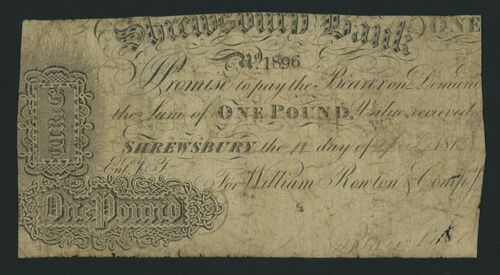 Shrewsbury Bank ONE
No 1896
I Promise to pay the Bearer on Demand
the Sum of ONE POUND, Value received
SHREWSBURY the 11 day of April 181
Ent. J.P.
For William Rowton & Compy
One Pound